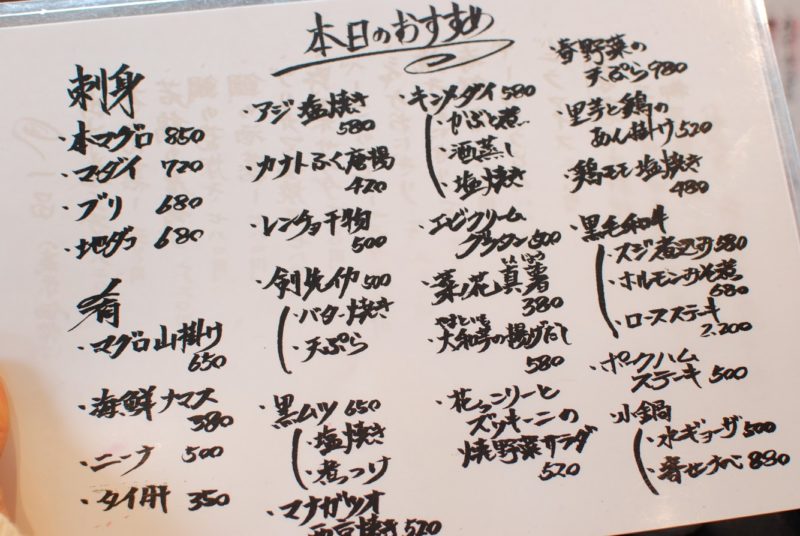 本日のおすすめ
刺身
・本マグロ 850
・マダイ 720
・ブリ 680
・地ダコ 680
肴
・マグロ山掛け
650
・海鮮ナマス
580
・ニーナ 500
・タイ肝 350
・アジ塩焼き
580
・カナトふぐ唐揚
420
・レンチョ干物
500
・剣先イカ 500
・バター焼き
・天ぷら
・黒ムツ 650
・塩焼き
・煮つけ
・マナガツオ
西京焼き 520
・キンメダイ 580
・かぶと煮
・酒蒸し
・塩焼き
・エビクリーム
グラタン 500
・菜ノ花真薯
380
やまといも
・大和芋の揚げだし
580
・花っこリーと
ズッキーニの
焼野菜サラダ
520
・春野菜の
天ぷら 980
・里芋と鶏の
あん掛け 520
・鶏モモ塩焼き
480
・黒毛和牛
・スジ煮込み 580
・ホルモンみそ煮
680
・ロースステーキ
2,200
・ポークハム
ステーキ 500
・小鍋
・水ギョーザ 500
・寄せナベ 880